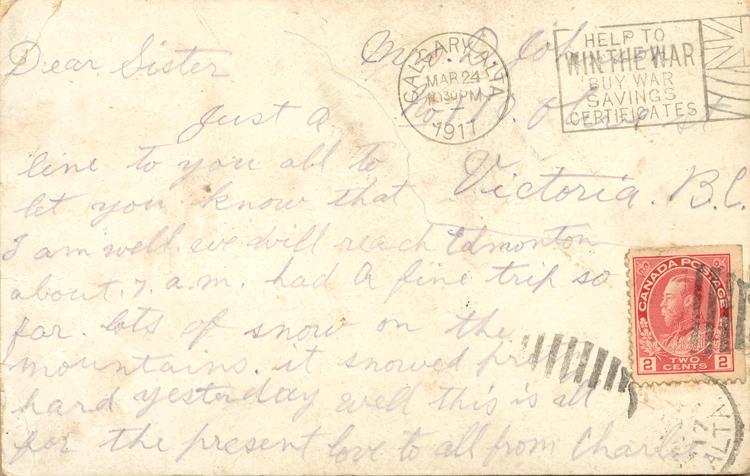 CALGARY, ALTA
MAR 24
10 30 PM
1917
HELP TO
WIN THE WAR
BUY WAR
SAVINGS
CERTIFICATES
Mrs. D. Johnson
Victoria. B.C.
Dear Sister
Just a
line to you all to
let you know that
I am well. we will reach Edmonton
about. 7. a.m. had a fine trip so
far. lots of snow on the
mountains. it snowed
hard yesterday well this is all
for the present love to all from Charlie
CANADA POSTAGE
2 TWO CENTS 2
17
ALTA